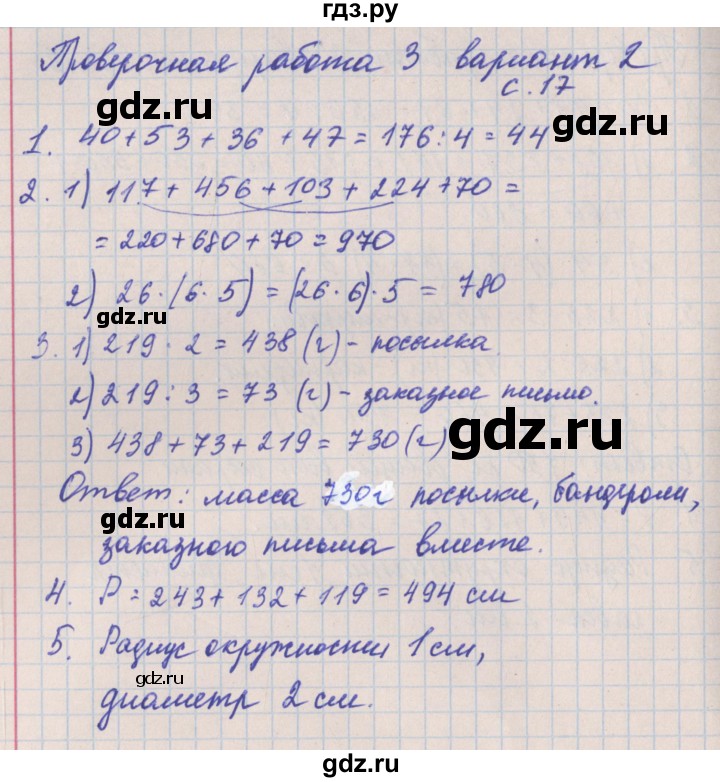 гдз.ру
Проверочная работа 3 вариант 2
с. 17
gdz.ru
gdz.ru
1. 40 + 53 + 36 + 47 = 176 : 4 = 44
2. 1) 117 + 456 + 103 + 224 + 70 =
gdz.ru
= 220 + 680 + 70 = 970
2) 26 · (6 · 5) = (26 · 6) · 5 = 780
gdz.ru
3. 1) 219 · 2 = 438 (г) - посылка
2) 219 : 3 = 73 (г) - заказное письмо.
gdz.ru
3) 438 + 73 + 219 = 730 (г)
Ответ: масса 730г посылки, бандероли,
gdz.ru
заказного письма вместе.
4. P = 243 + 132 + 119 = 494 см
5. Радиус окружности 1 см,
gdz.ru
диаметр 2 см.
gdz.ru